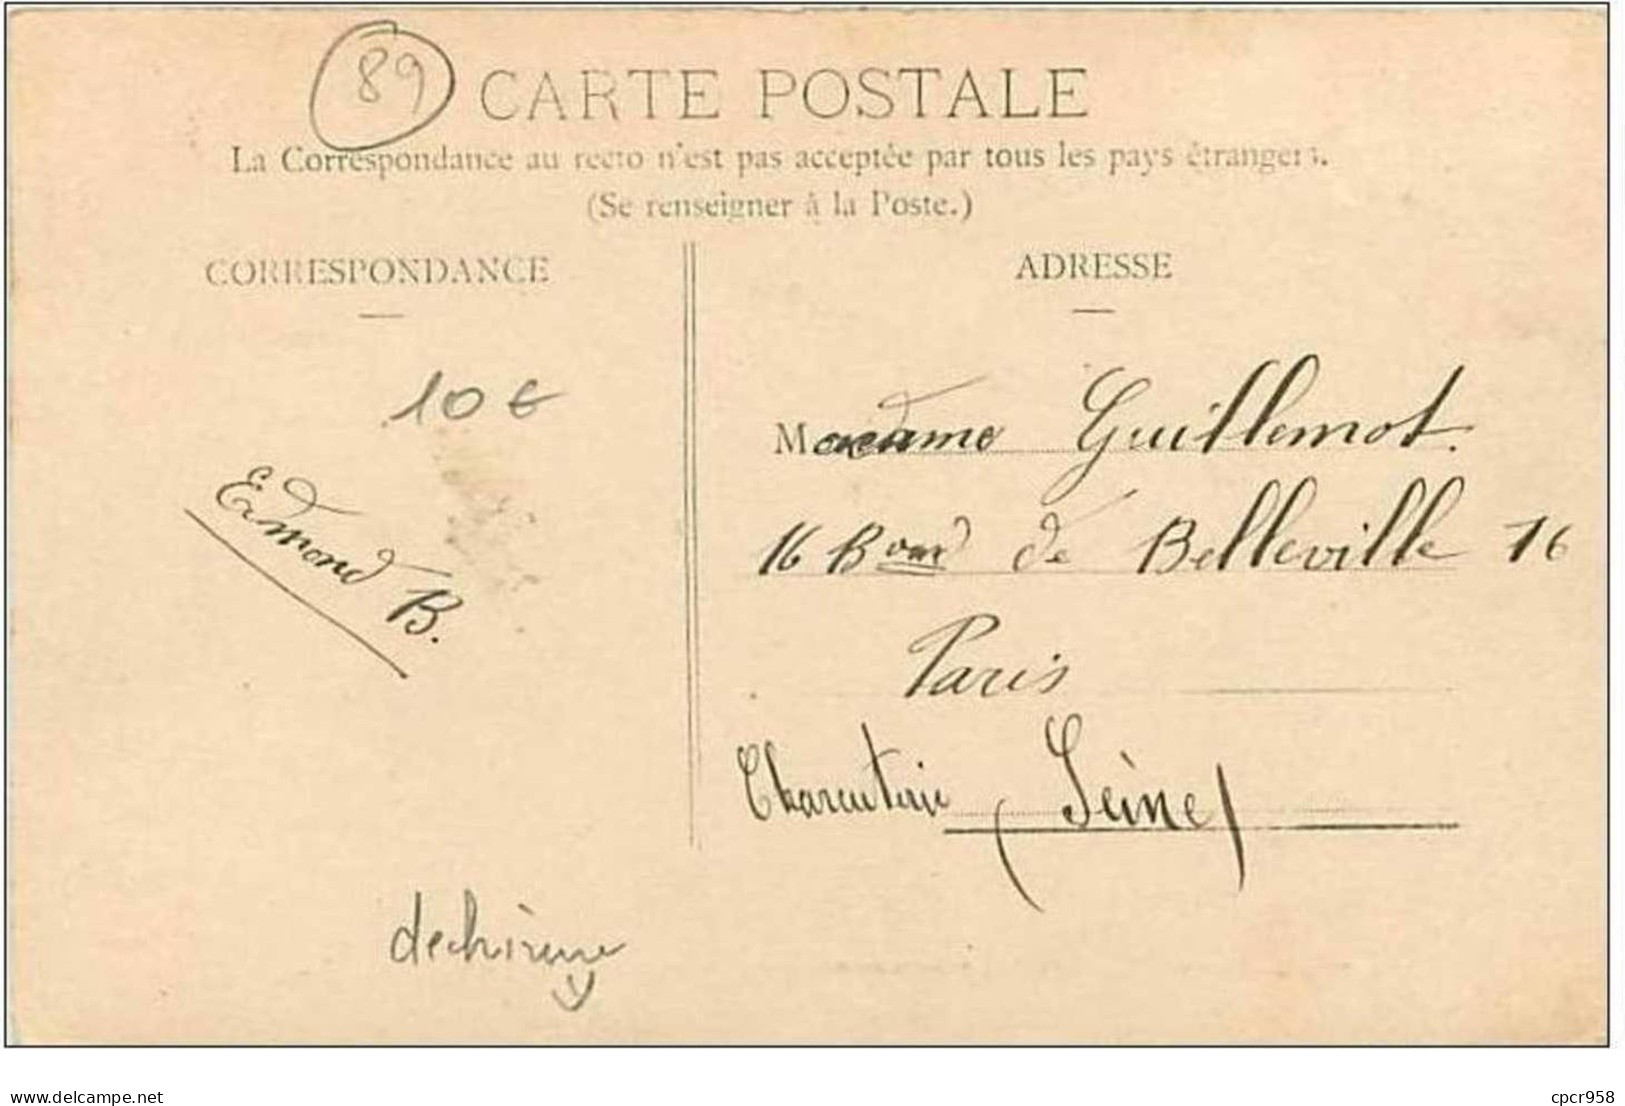 89
CARTE POSTALE
La Correspondance au recto n'est pas acceptée par tous les pays étrangers.
(Se renseigner à la Poste.)
CORRESPONDANCE
10 €
Edmond B.
dechirure
ADRESSE
Madame Guillemot.
16 Bard de Belleville 16
Paris
Charcuterie (Seine)
delcampe.net
cpcr958